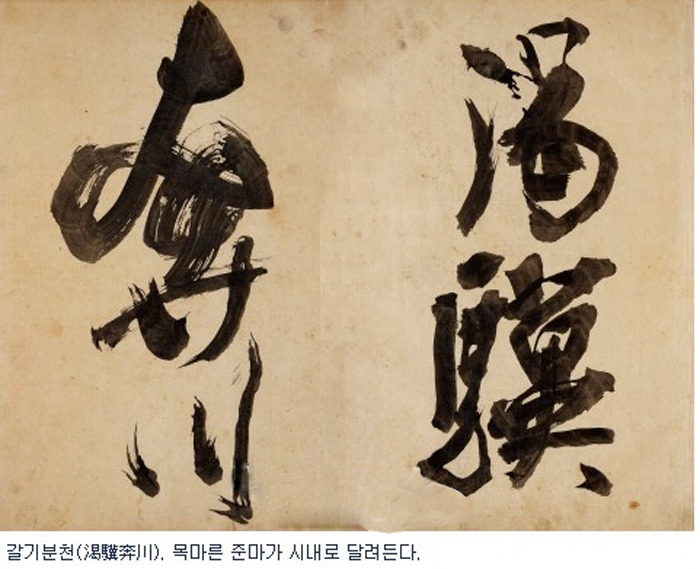 渴驥
奔川
갈기분천(渴驥奔川). 목마른 준마가 시내로 달려든다.